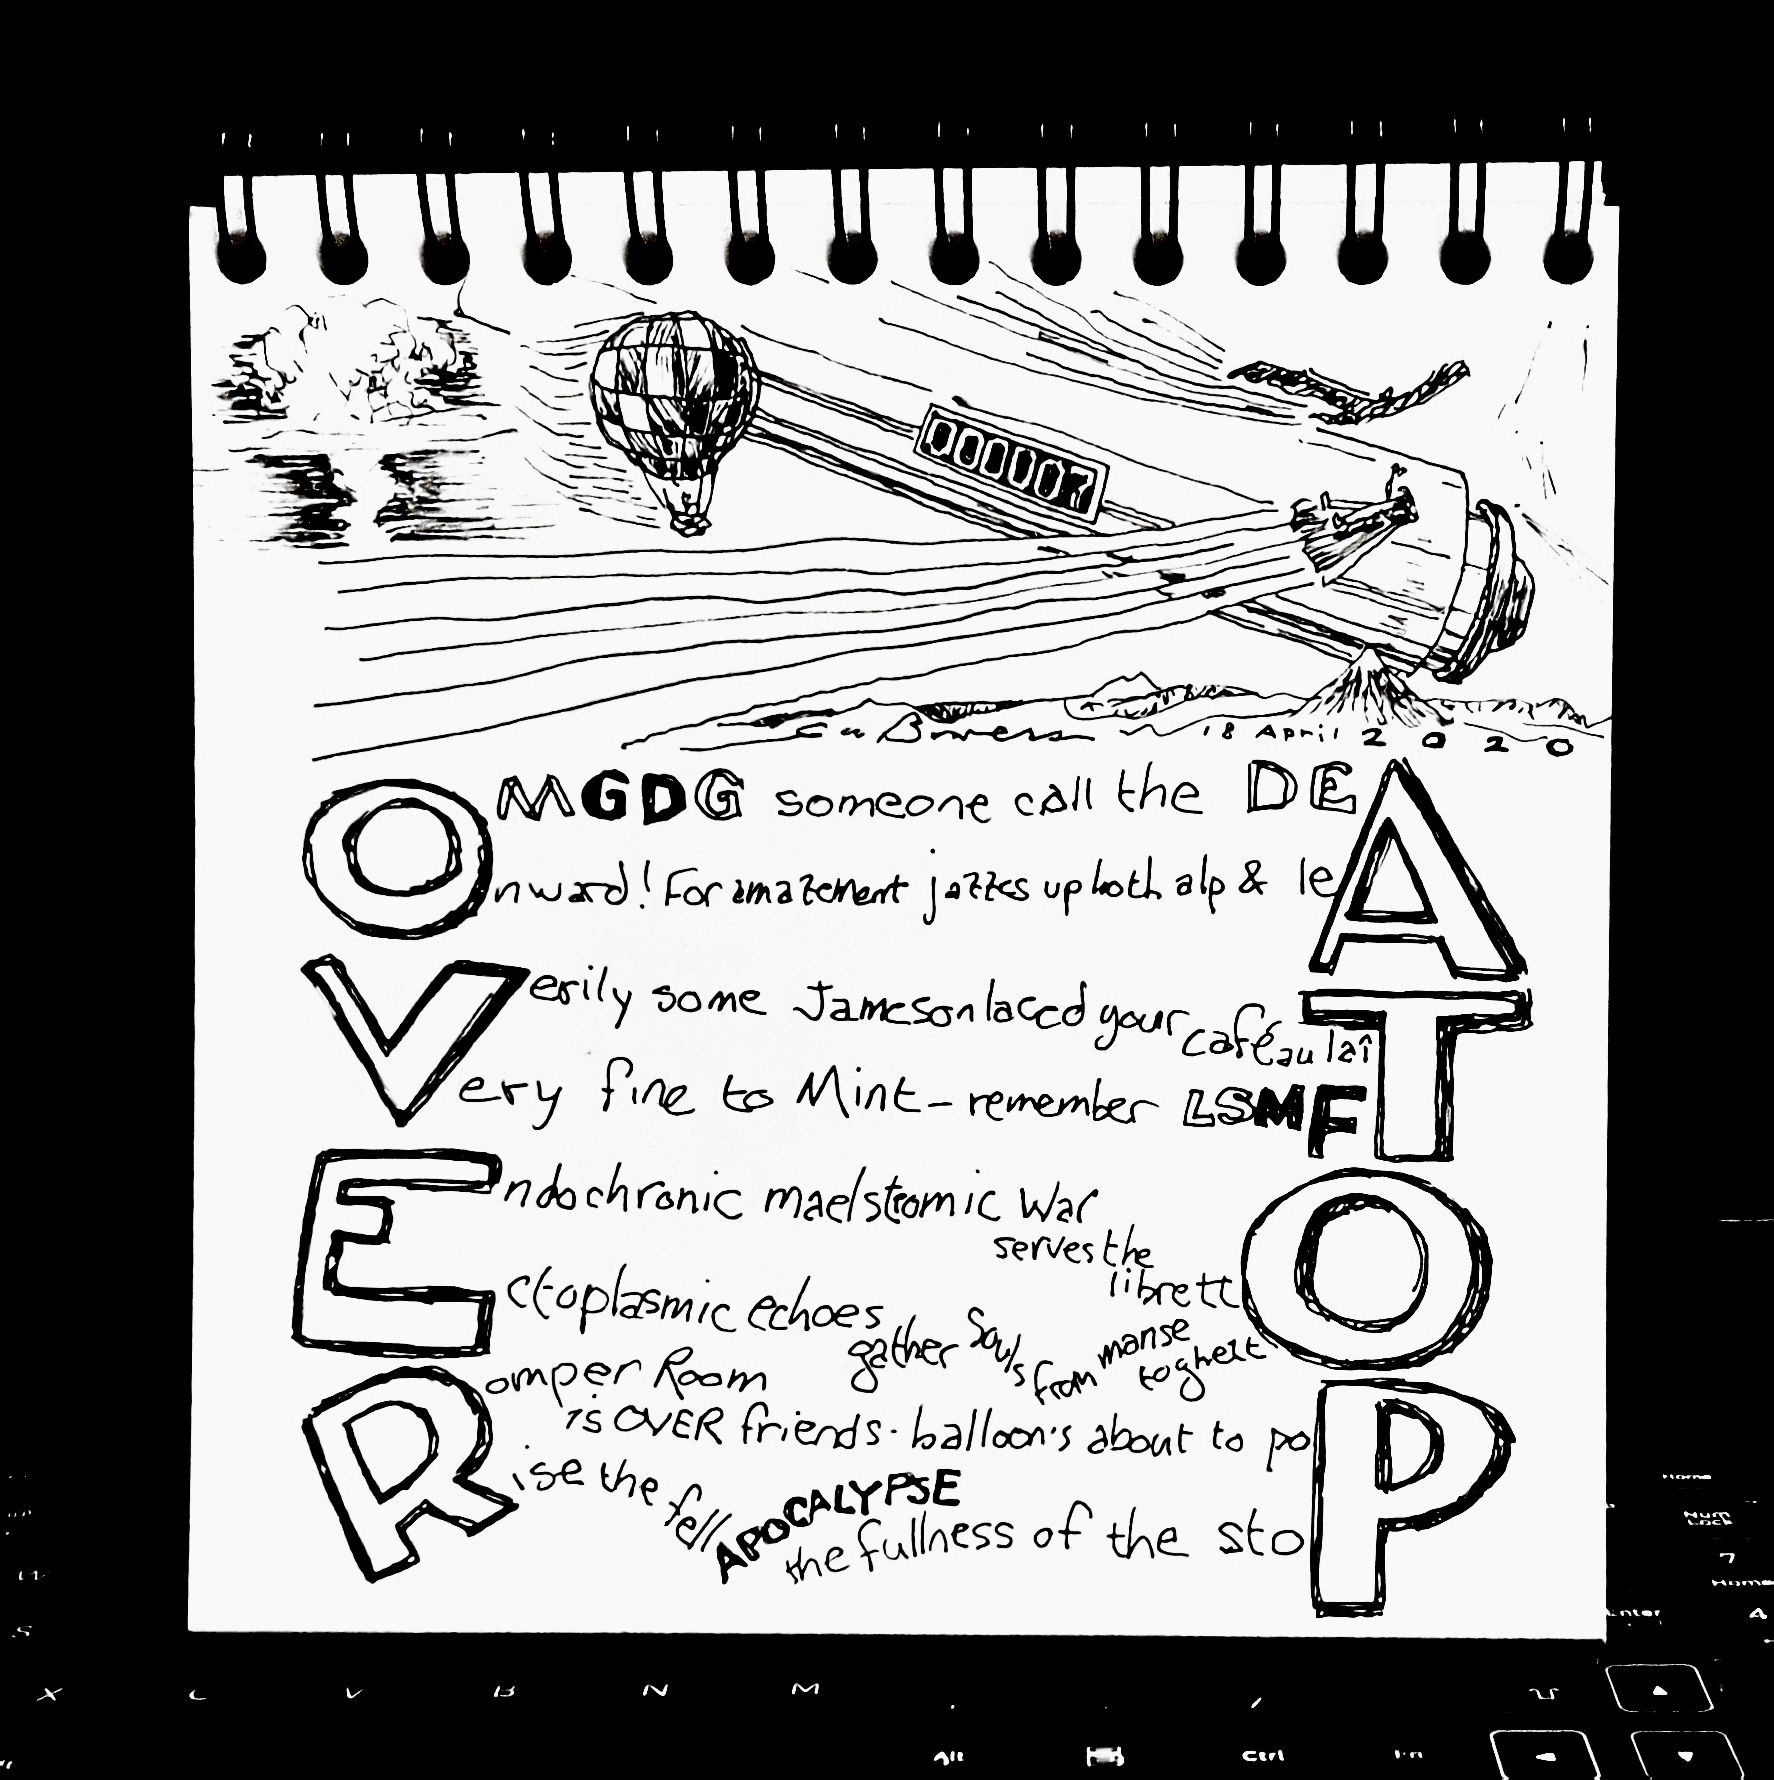 000007
USA
Cu Bowers 18 April 2020
OMGDG someone call the DEA
Onward! For amazement jazzes up both alp & leA
Verily some Jameson laced your café au laîT
Very fine to Mint - remember LSMFT
Endochronic maelstromic War
serves the
librettO
Ectoplasmic echoes
gather Souls from manse
to ghettO
Romper Room
is OVER friends. balloon's about to poP
Rise the fell APOCALYPSE
the fullness of the stoP
Home
Num Lock
7
Home
Enter
4
S
X C V B N M
Alt Ctrl Fn